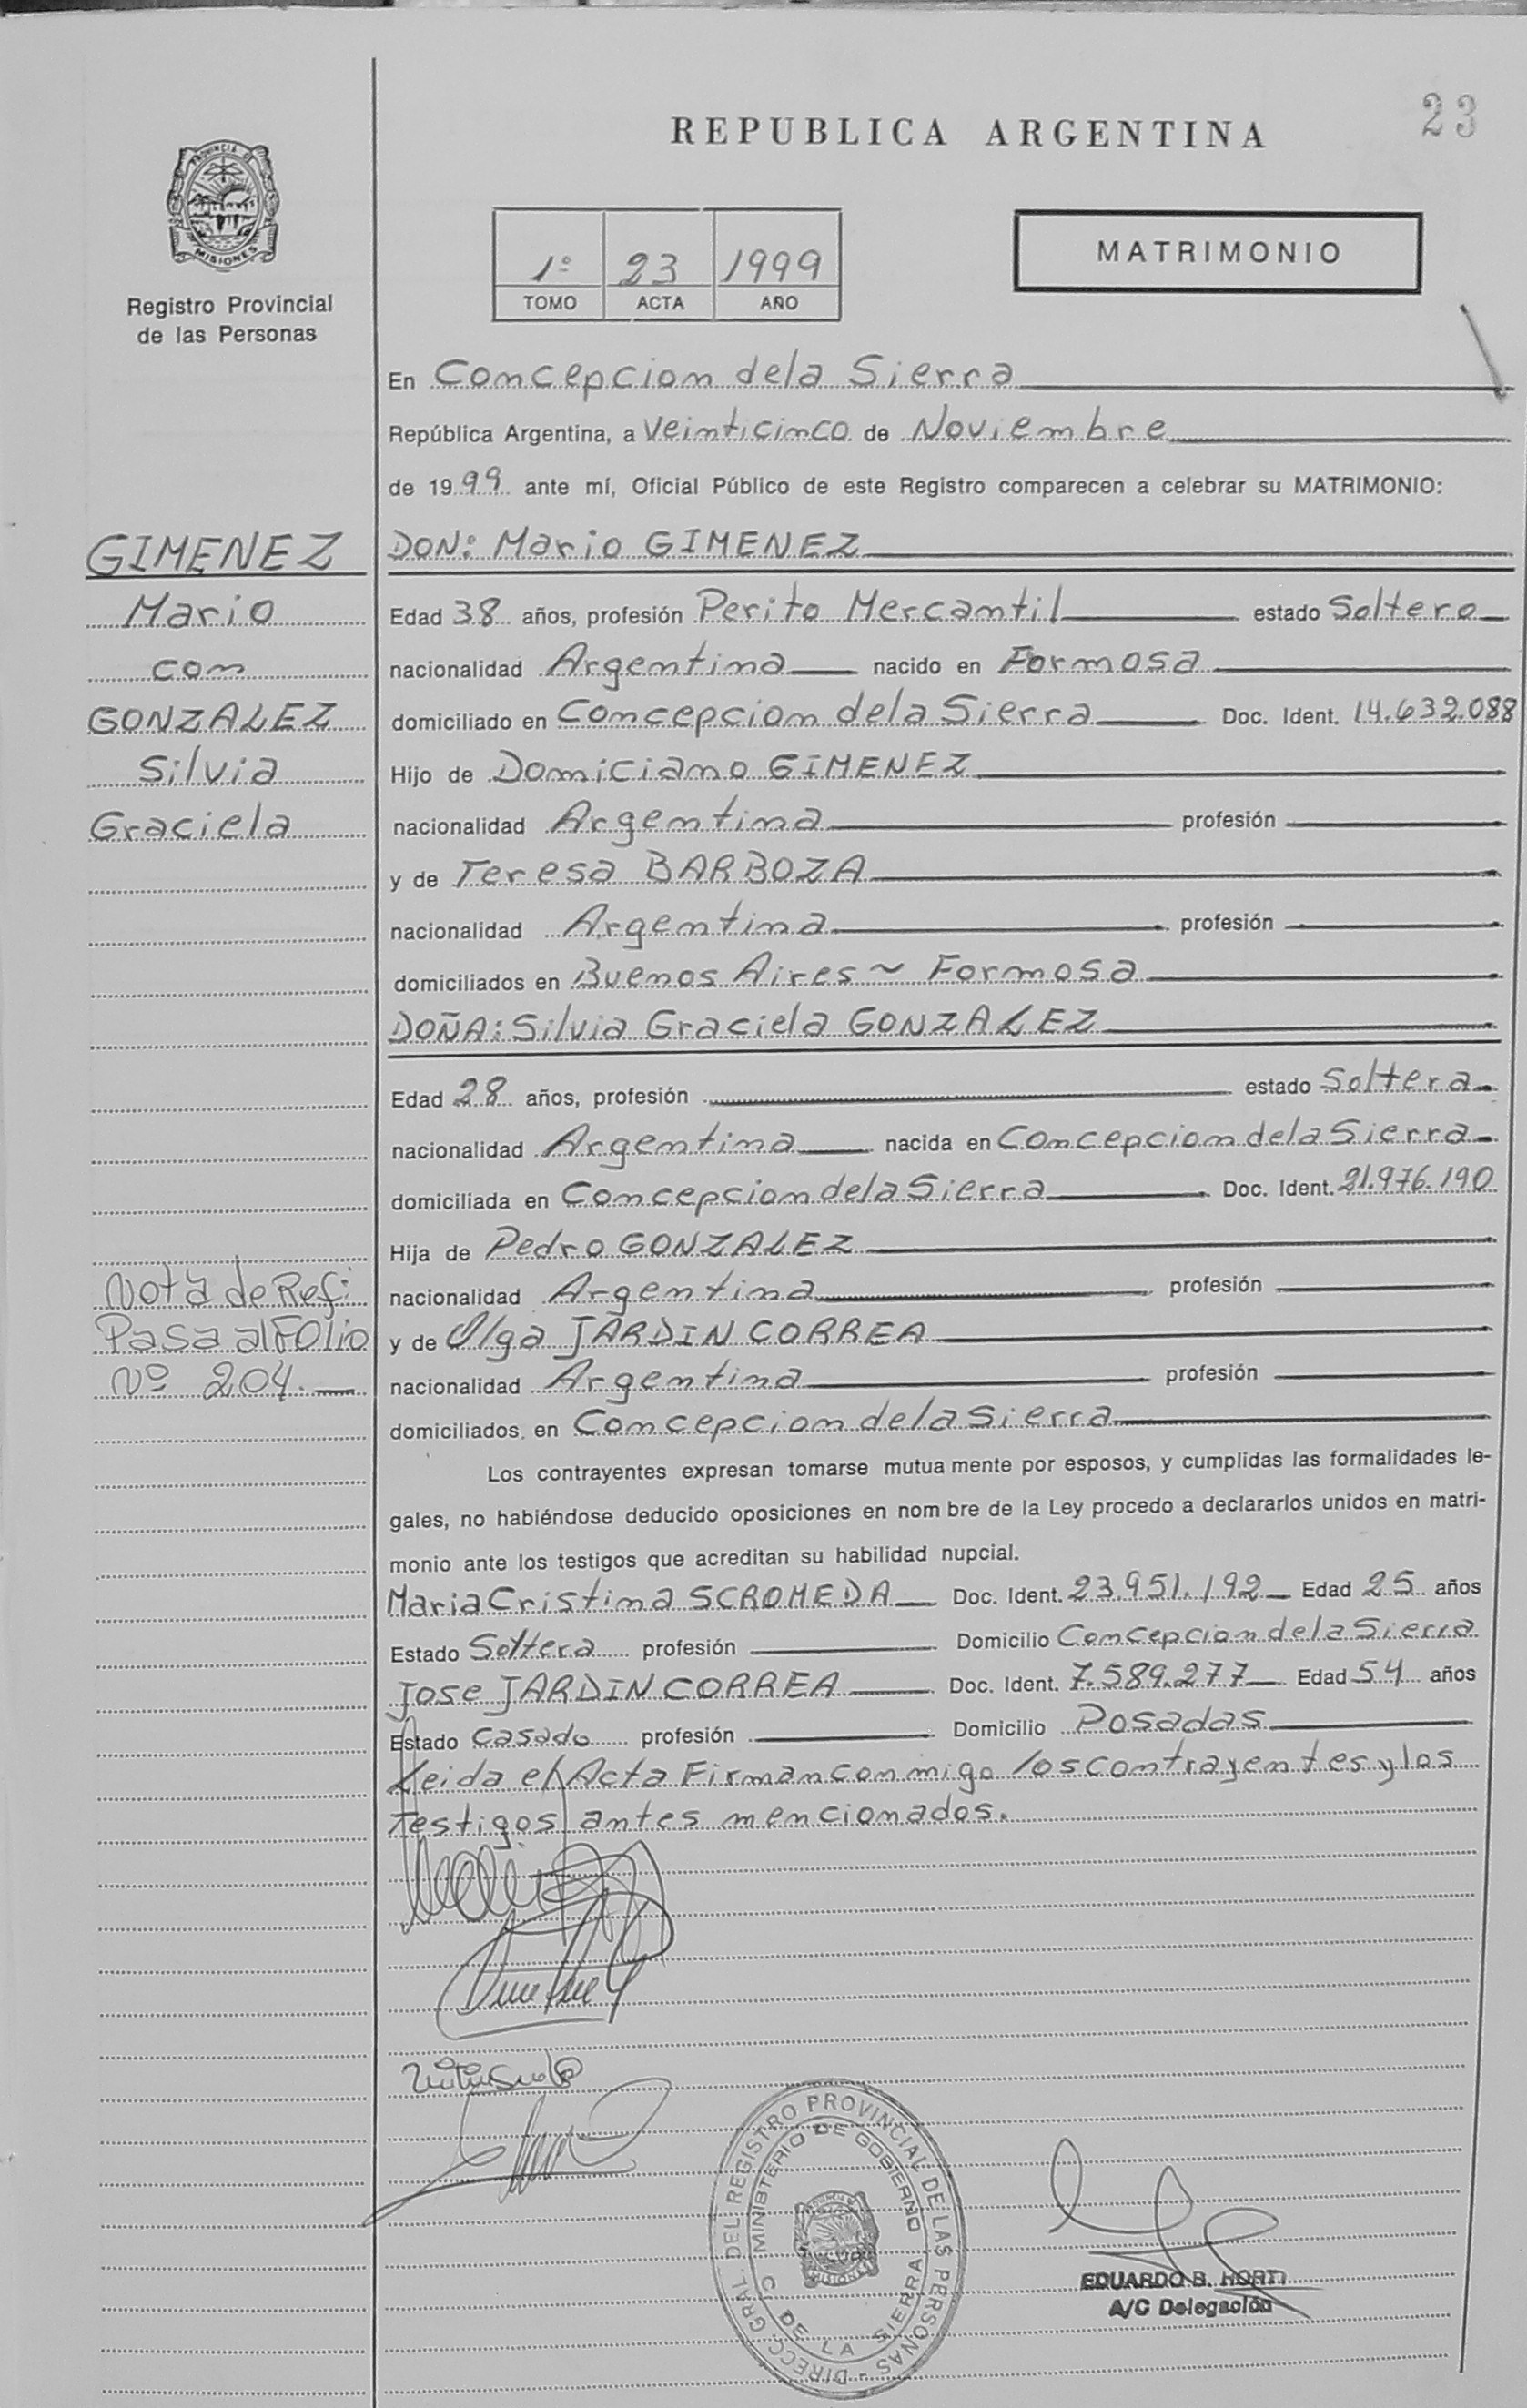 23
REPUBLICA ARGENTINA
PROVINCIA D
MISIONES
Registro Provincial
de las Personas
1º 23 1999
TOMO ACTA AÑO
MATRIMONIO
En Concepcion de la Sierra
República Argentina, a Veinticinco de Noviembre
de 1999 ante mí, Oficial Público de este Registro comparecen a celebrar su MATRIMONIO:
GIMENEZ
Mario
con
GONZALEZ
Silvia
Graciela
DON: Mario GIMENEZ
Edad 38 años, profesión Perito Mercantil estado Soltero
nacionalidad Argentina nacido en Formosa
domiciliado en Concepcion de la Sierra Doc. Ident. 14.632.088
Hijo de Domiciano GIMENEZ
nacionalidad Argentina profesión
y de Teresa BARBOZA
nacionalidad Argentina profesión
domiciliados en Buenos Aires ~ Formosa
DOÑA: Silvia Graciela GONZALEZ
Edad 28 años, profesión estado Soltera
nacionalidad Argentina nacida en Concepcion de la Sierra
domiciliada en Concepcion de la Sierra Doc. Ident. 21.976.190
Hija de Pedro GONZALEZ
nacionalidad Argentina profesión
y de Olga JARDIN CORREA
nacionalidad Argentina profesión
domiciliados en Concepcion de la Sierra
Nota de Ref:
Pasa al Folio
Nº 204.
Los contrayentes expresan tomarse mutua mente por esposos, y cumplidas las formalidades le-
gales, no habiéndose deducido oposiciones en nom bre de la Ley procedo a declararlos unidos en matri-
monio ante los testigos que acreditan su habilidad nupcial.
Maria Cristina SCROMEDA Doc. Ident. 23.951.192 Edad 25 años
Estado Soltera profesión Domicilio Concepcion de la Sierra
Jose JARDIN CORREA Doc. Ident. 7.589.277 Edad 54 años
Estado Casado profesión Domicilio Posadas
Leida el Acta Firman conmigo los contrayentes y los
Testigos antes mencionados.
DIRECC. GRAL. DEL REGISTRO PROVINCIAL DE LAS PERSONAS
MINISTERIO DE GOBIERNO
C DE LA SIERRA
EDUARDO B. HORT
A/C Delegación